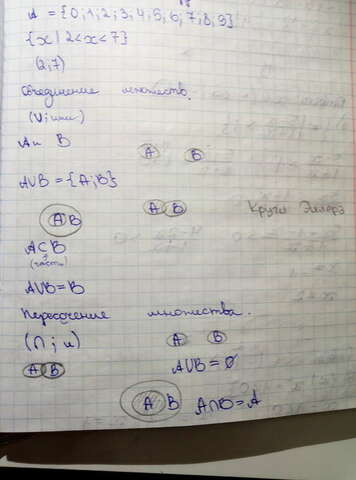 A = {0;1;2;3;4;5;6;7;8;9}
{x | 2<x<7}
(2,7)
Объединение множеств.
(∪; или)
A и B
A B
A∪B = {A;B}
A B
A B
Круги Эйлера
A⊂B
(часть)
A∪B=B
Пересечение множества.
(∩; и)
A B
A B
A∪B=∅
A B
A∩B=A